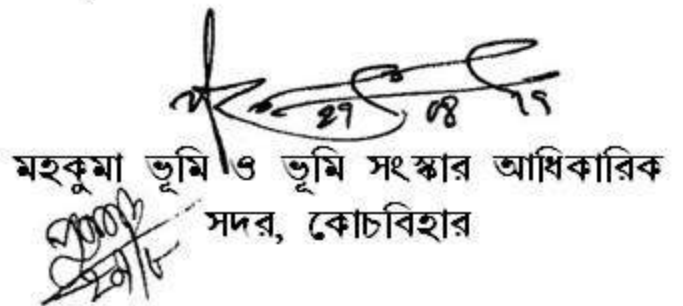 ২৭ ০৪ ১৭
মহকুমা ভূমি ও ভূমি সংস্কার আধিকারিক
সদর, কোচবিহার